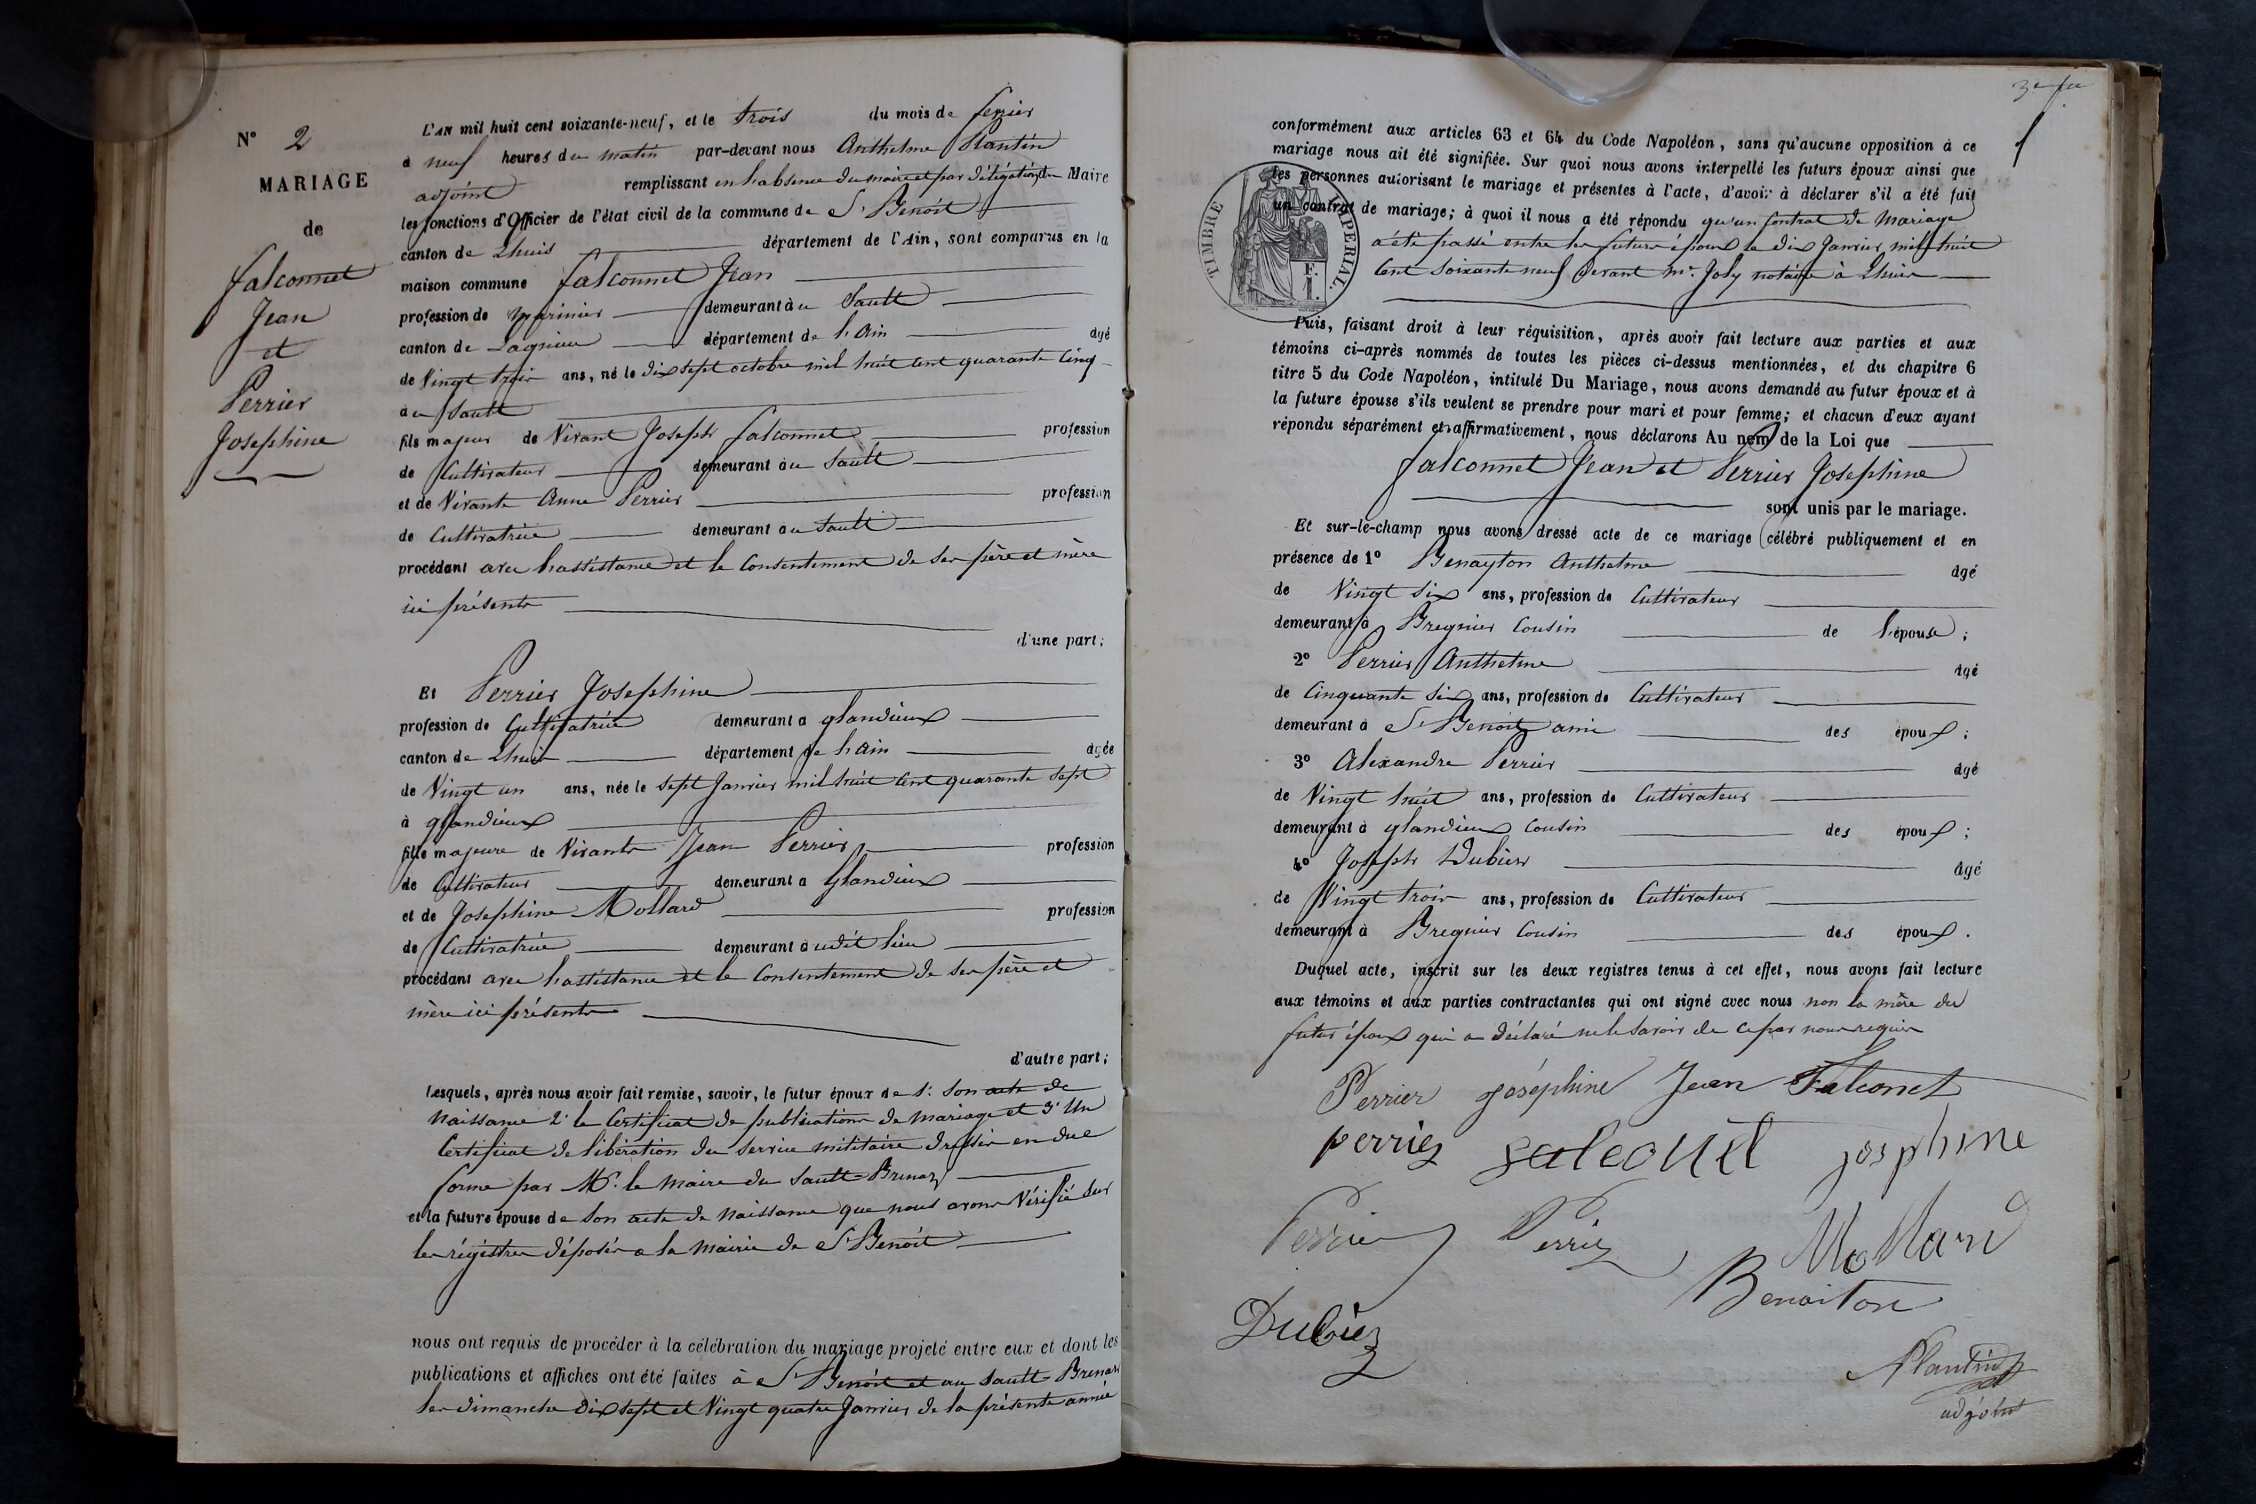 N° 2
MARIAGE
de
falconnet
Jean
et
Perrier
Josephine
L'AN mil huit cent soixante-neuf, et le trois du mois de fevrier
à neuf heures du matin par-devant nous Anthelme Plantin
adjoint remplissant en l'absence du maire et par délégation du Maire
les fonctions d'Officier de l'état civil de la commune de St Benoit
canton de Lhuis département de l'Ain, sont comparus en la
maison commune falconnet Jean
profession de marinier demeurant à u Sault
canton de Lagnieu département de l'Ain âgé
de Vingt trois ans, né le dix sept octobre mil huit cent quarante cinq
à u Sault
fils majeur de Vivant Joseph falconnet profession
de Cultivateur demeurant à u Sault
et de Vivante Anne Perrier profession
de Cultivatrice demeurant au Sault
procédant avec l'assistance et le consentement de ses père et mère
ici présents
d'une part;
Et Perrier Josephine
profession de Cultivatrice demeurant a glandieux
canton de Lhuis département de l'Ain âgée
de Vingt un ans, née le sept Janvier mil huit cent quarante sept
à glandieux
fille majeure de Vivants Jean Perrier profession
de Cultivateur demeurant a Glandieux
et de Josephine Mollard profession
de Cultivatrice demeurant à udit lieu
procédant avec l'assistance et le consentement de ses père et
mère ici présents
d'autre part;
Lesquels, après nous avoir fait remise, savoir, le futur époux de 1° Son acte de
Naissance 2° le Certificat de publications de mariage et 3° Un
Certificat de libération du service militaire dressés en due
forme par Mr. le maire du Sault-Brenaz
et la future épouse de son acte de Naissance que nous avons Vérifié sur
les régistres déposés a la Mairie de St Benoit
nous ont requis de procéder à la célébration du mariage projeté entre eux et dont les
publications et affiches ont été faites à St Benoit et au Sault-Brenaz
les dimanches dix sept et Vingt quatre Janvier de la présente année
3e fe
conformément aux articles 63 et 64 du Code Napoléon, sans qu'aucune opposition à ce
mariage nous ait été signifiée. Sur quoi nous avons interpellé les futurs époux ainsi que
les personnes autorisant le mariage et présentes à l'acte, d'avoir à déclarer s'il a été fait
un contrat de mariage; à quoi il nous a été répondu qu'un Contrat de Mariage
a été passé entre les futurs époux le dix Janvier mil huit
Cent Soixante neuf devant Mr. Joly notaire à Lhuis
TIMBRE IMPERIAL.
F.
1.
Puis, faisant droit à leur réquisition, après avoir fait lecture aux parties et aux
témoins ci-après nommés de toutes les pièces ci-dessus mentionnées, et du chapitre 6
titre 5 du Code Napoléon, intitulé Du Mariage, nous avons demandé au futur époux et à
la future épouse s'ils veulent se prendre pour mari et pour femme; et chacun d'eux ayant
répondu séparément et affirmativement, nous déclarons Au nom de la Loi que
falconnet Jean et Perrier Josephine
sont unis par le mariage.
Et sur-le-champ nous avons dressé acte de ce mariage célébré publiquement et en
présence de 1° Benayton Anthelme âgé
de Vingt Six ans, profession de Cultivateur
demeurant à Bregnier Cousin de l'épouse;
2° Perrier Anthelme âgé
de Cinquante Six ans, profession de Cultivateur
demeurant à St Benoit ami des époux;
3° Alexandre Perrier âgé
de Vingt huit ans, profession de Cultivateur
demeurant à glandieux Cousin des époux;
4° Joseph Dubiez âgé
de Vingt trois ans, profession de Cultivateur
demeurant à Bregnier Cousin des époux.
Duquel acte, inscrit sur les deux registres tenus à cet effet, nous avons fait lecture
aux témoins et aux parties contractantes qui ont signé avec nous non la mère du
futur époux qui a déclaré ne le savoir de ce par nous requise
Perrier joséphine Jean Falconet
perriez falconet josphine
Perrier Perriez Mollard
Benaiton
Dubiez
Plantin
adjoint